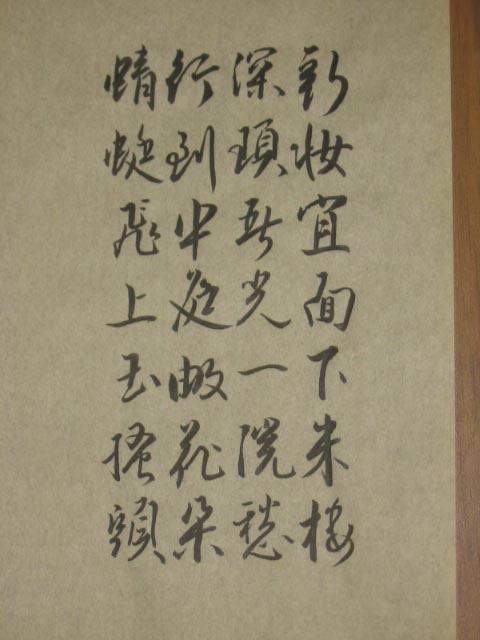 新妝宜面下朱樓
深鎖春光一院愁
行到中庭數花朵
蜻蜓飛上玉搔頭